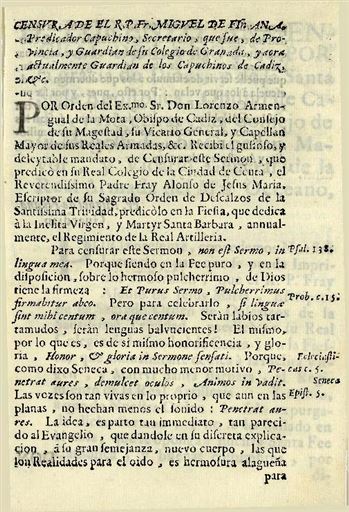 CENSVRA DE EL R.P.Fr. MIGVEL DE Fiñ ANA,
Predicador Capuchino, Secretario, que fue, de Pro-
vincia, y Guardian de su Colegio de Granada, y aora
actualmente Guardian de los Capuchinos de Cadiz,
&c.
POR Orden del Ex.mo. Sr. Don Lorenzo Armen-
gual de la Mota, Obispo de Cadiz, del Consejo
de su Magestad, su Vicario General, y Capellan
Mayor de sus Reales Armadas, &c. Recibi el gustoso, y
deleytable mandato, de Censurar este Sermon, que
predicò en su Real Colegio de la Ciudad de Ceuta, el
Reverendissimo Padre Fray Alonso de Jesus Maria,
Escriptor de su Sagrado Orden de Descalzos de la
Santissima Trinidad, predicòlo en la Fiesta, que dedica
à la Inclita Virgen, y Martyr Santa Barbara, annual-
mente, el Regimiento de la Real Artilleria.
Para censurar este Sermon, non est Sermo, in Psal. 138.
lingua mea. Porque siendo en la Fee puro, y en la
disposicion, sobre lo hermoso pulcherrimo, de Dios
tiene la firmeza: Et Purus Sermo, Pulcherrimus
firmabitur ab eo. Pero para celebrarlo, si lingua Prob. c. 15.
sint mihi centum, ora que centum. Seràn labios tar-
tamudos, seràn lenguas balvucientes! El mismo,
por lo que es, es de sì mismo honorificencia, y glo-
ria, Honor, & gloria in Sermone sensati. Porque, Eclesiasti-
como dixo Seneca, con mucho menor motivo, Pe- cas c. 5.
netrat aures, demulcet oculos, Animos in vadit. Seneca
Las vozes son tan vivas en lo proprio, que aun en las Epist. 5.
planas, no hechan menos el sonido: Penetrat au-
res. La idea, es parto tan immediato, tan pareci-
do al Evangelio, que dandole en su discreta explica-
cion, à su gran semejanza, nuevo cuerpo, las que
son Realidades para el oìdo, es hermosura alagueña
para